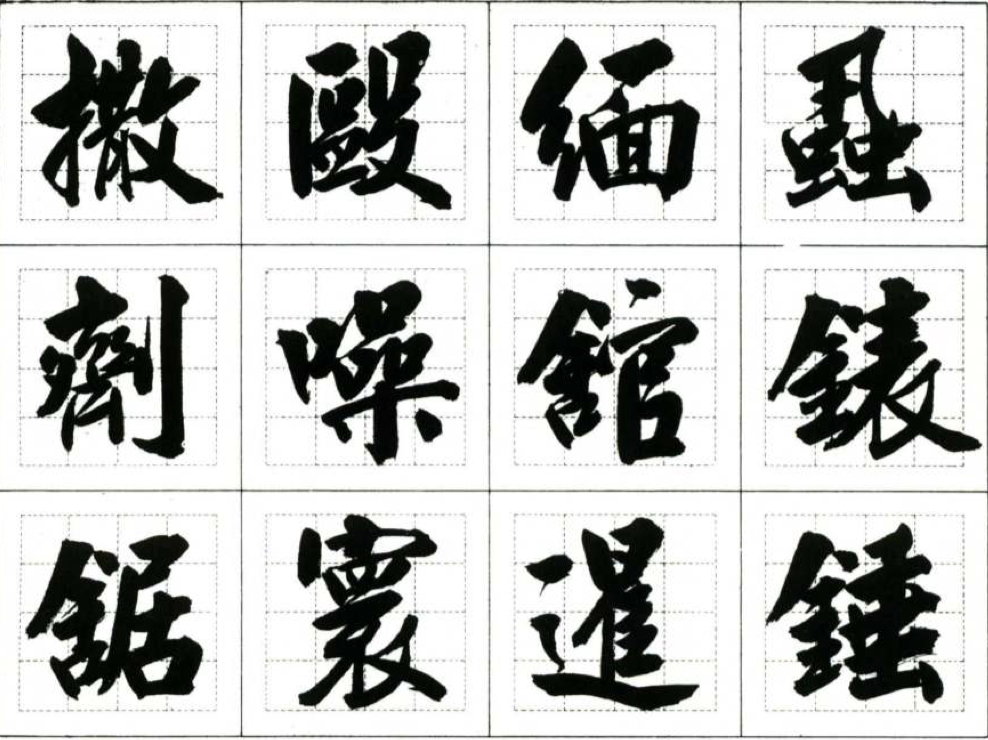 撒毆緬蝨
劑噪舘錶
鋸寰暹錘